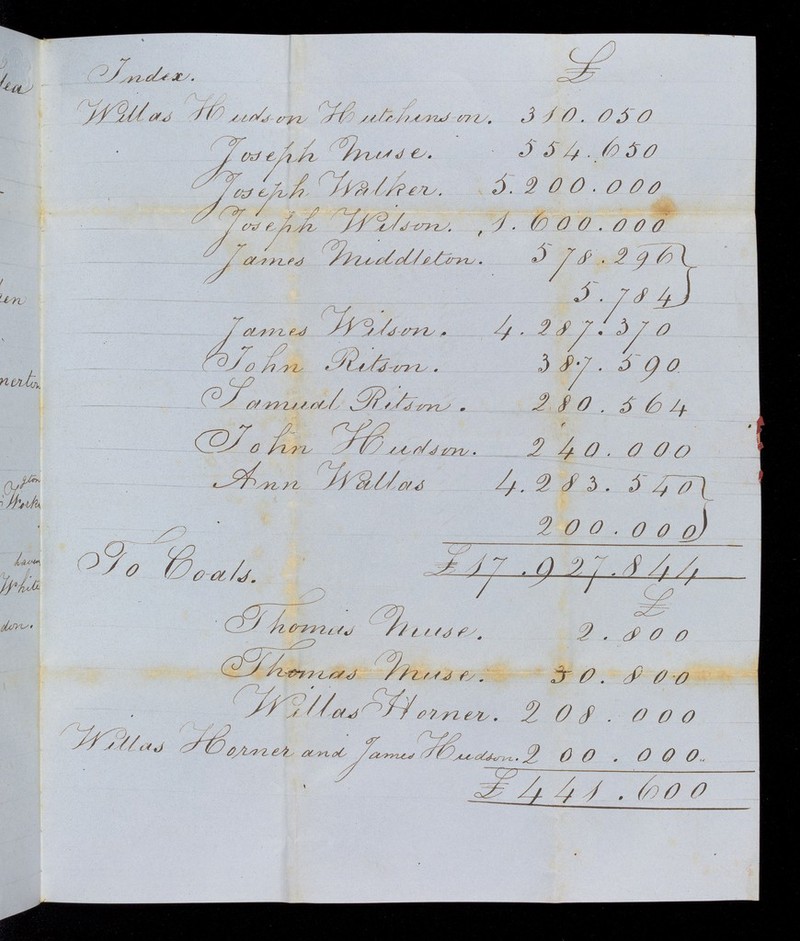 Index. £
Willas Hudson Hutchinson. 310.050
Joseph Muse. 554.650
Joseph Walker. 5.200.000
Joseph Wilson. 1.600.000
James Middleton. 578.296
5.784
James Wilson. 4.287.370
John Ritson. 387.590
Samual Ritson. 280.564
John Hudson. 240.000
Ann Wallas 4.283.540
200.000
£17.927.844
To Coals.
£
Thomas Muse. 2.800
Thomas Muse. 30.800
Willas Horner. 208.000
Willas Horner and James Hudson. 200.000
£441.600